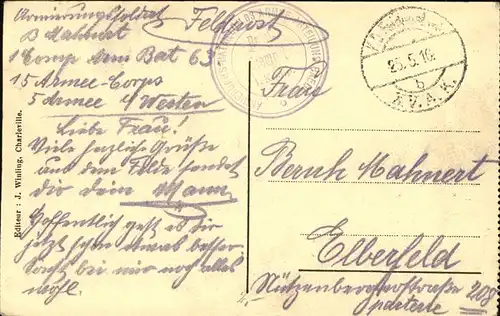 Armierungssoldat
B Mahnert
1 Comp Arm Bat 63
15 Armee-Corps
5 Armee Westen
Liebe Frau!
Viele herzliche Grüße
aus dem Felde sendet
dir dein Mann
Hoffentlich geht es dir
jetzt schon etwas besser
sonst bei mir noch alles
wohl.
Feldpost
25.5.16
b
XV. A.K.
Frau
Bernh Mahnert
Elberfeld
Nützenbergerstraße 208
parterre
Editeur: J. Winling, Charleville.